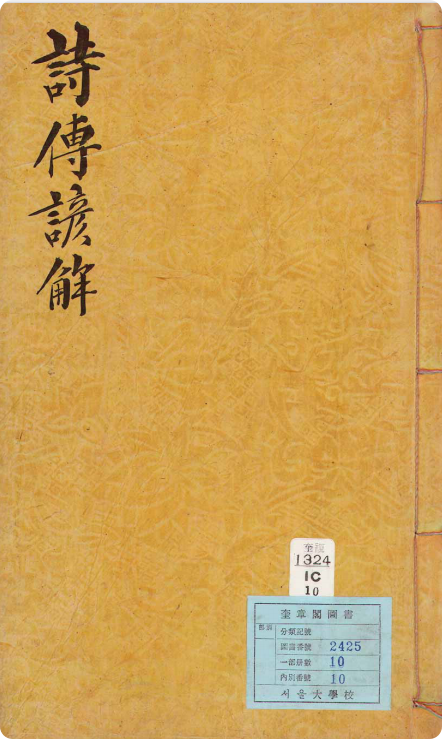 詩傳諺解
奎
1324
1C
10
奎章閣圖書
部類
分類記號
圖書番號 2425
一部冊數 10
內別番號 10
서울大學校